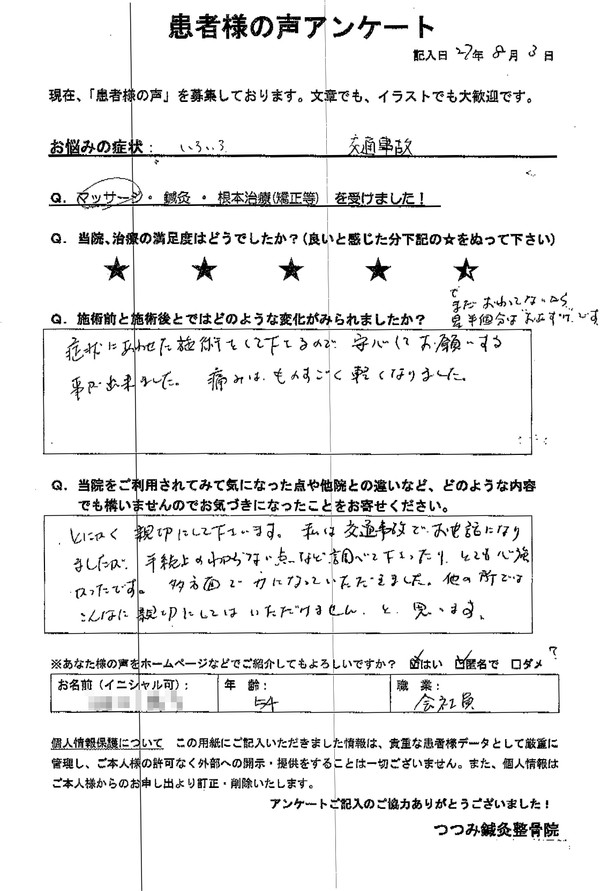 患者様の声アンケート
記入日 27年 8月 3日
現在、「患者様の声」を募集しております。文章でも、イラストでも大歓迎です。
お悩みの症状: いろいろ 交通事故
Q. マッサージ・鍼灸・根本治療(矯正等) を受けました!
Q. 当院、治療の満足度はどうでしたか?(良いと感じた分下記の★をぬって下さい)
★ ★ ★ ★ ★
で
まだ おわってないから
星半個分は です
Q. 施術前と施術後とではどのような変化がみられましたか?
症状にあわせた施術をして下さるので 安心してお願いする
事が出来ました。 痛みは ものすごく 軽くなりました。
Q. 当院をご利用されてみて気になった点や他院との違いなど、どのような内容
でも構いませんのでお気づきになったことをお寄せください。
とにかく 親切にして下さいます。 私は 交通事故で お世話になり
ましたが、手続上のわからない点など調べて下さったり、とても心強
かったです。 多方面で 力になっていただきました。他の所では
こんなに 親切にしては いただけません と 思います。
※あなた様の声をホームページなどでご紹介してもよろしいですか? ☑はい ☑匿名で □ダメ ?
お名前(イニシャル可): 年 齢: 職 業:
54 会社員
個人情報保護について この用紙にご記入いただきました情報は、貴重な患者様データとして厳重に
管理し、ご本人様の許可なく外部への開示・提供をすることは一切ございません。また、個人情報は
ご本人様からのお申し出より訂正・削除いたします。
アンケートご記入のご協力ありがとうございました!
つつみ鍼灸整骨院